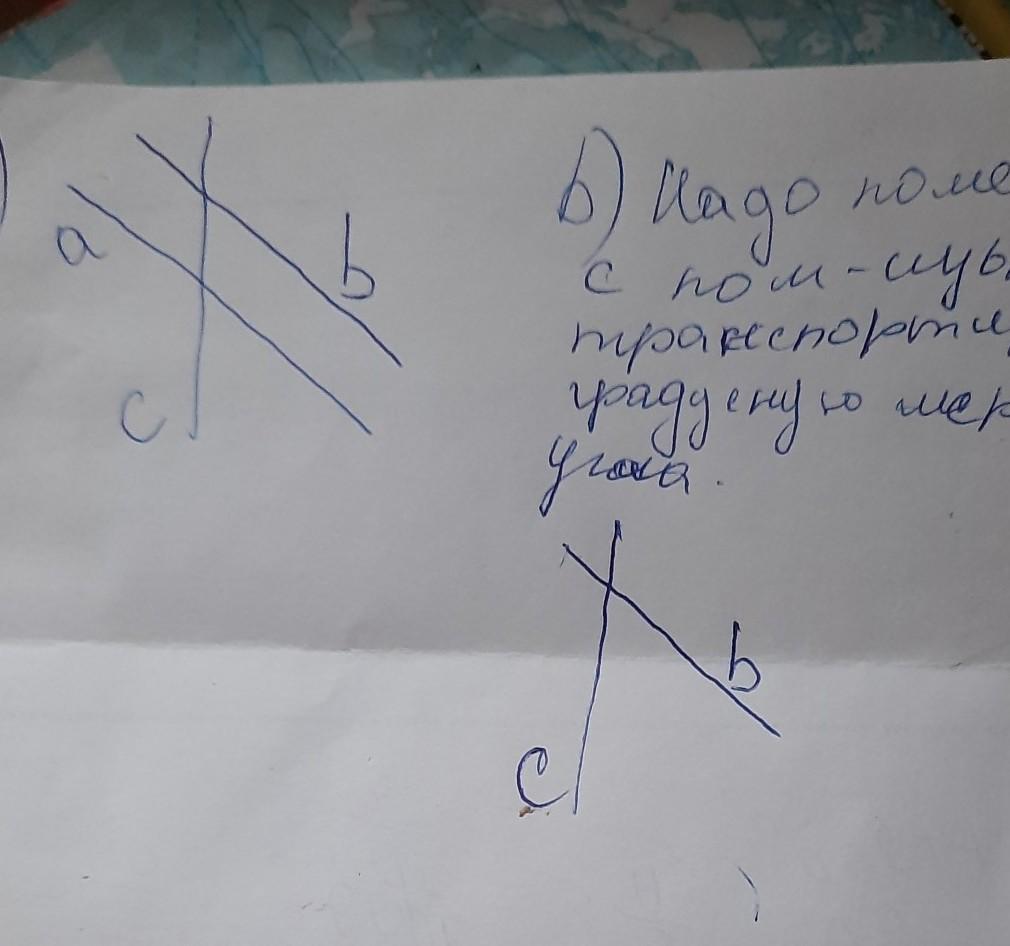 a
b
c
b) Надо поме
с пом-щью
транспорти
градусную мер
угла.
b
c